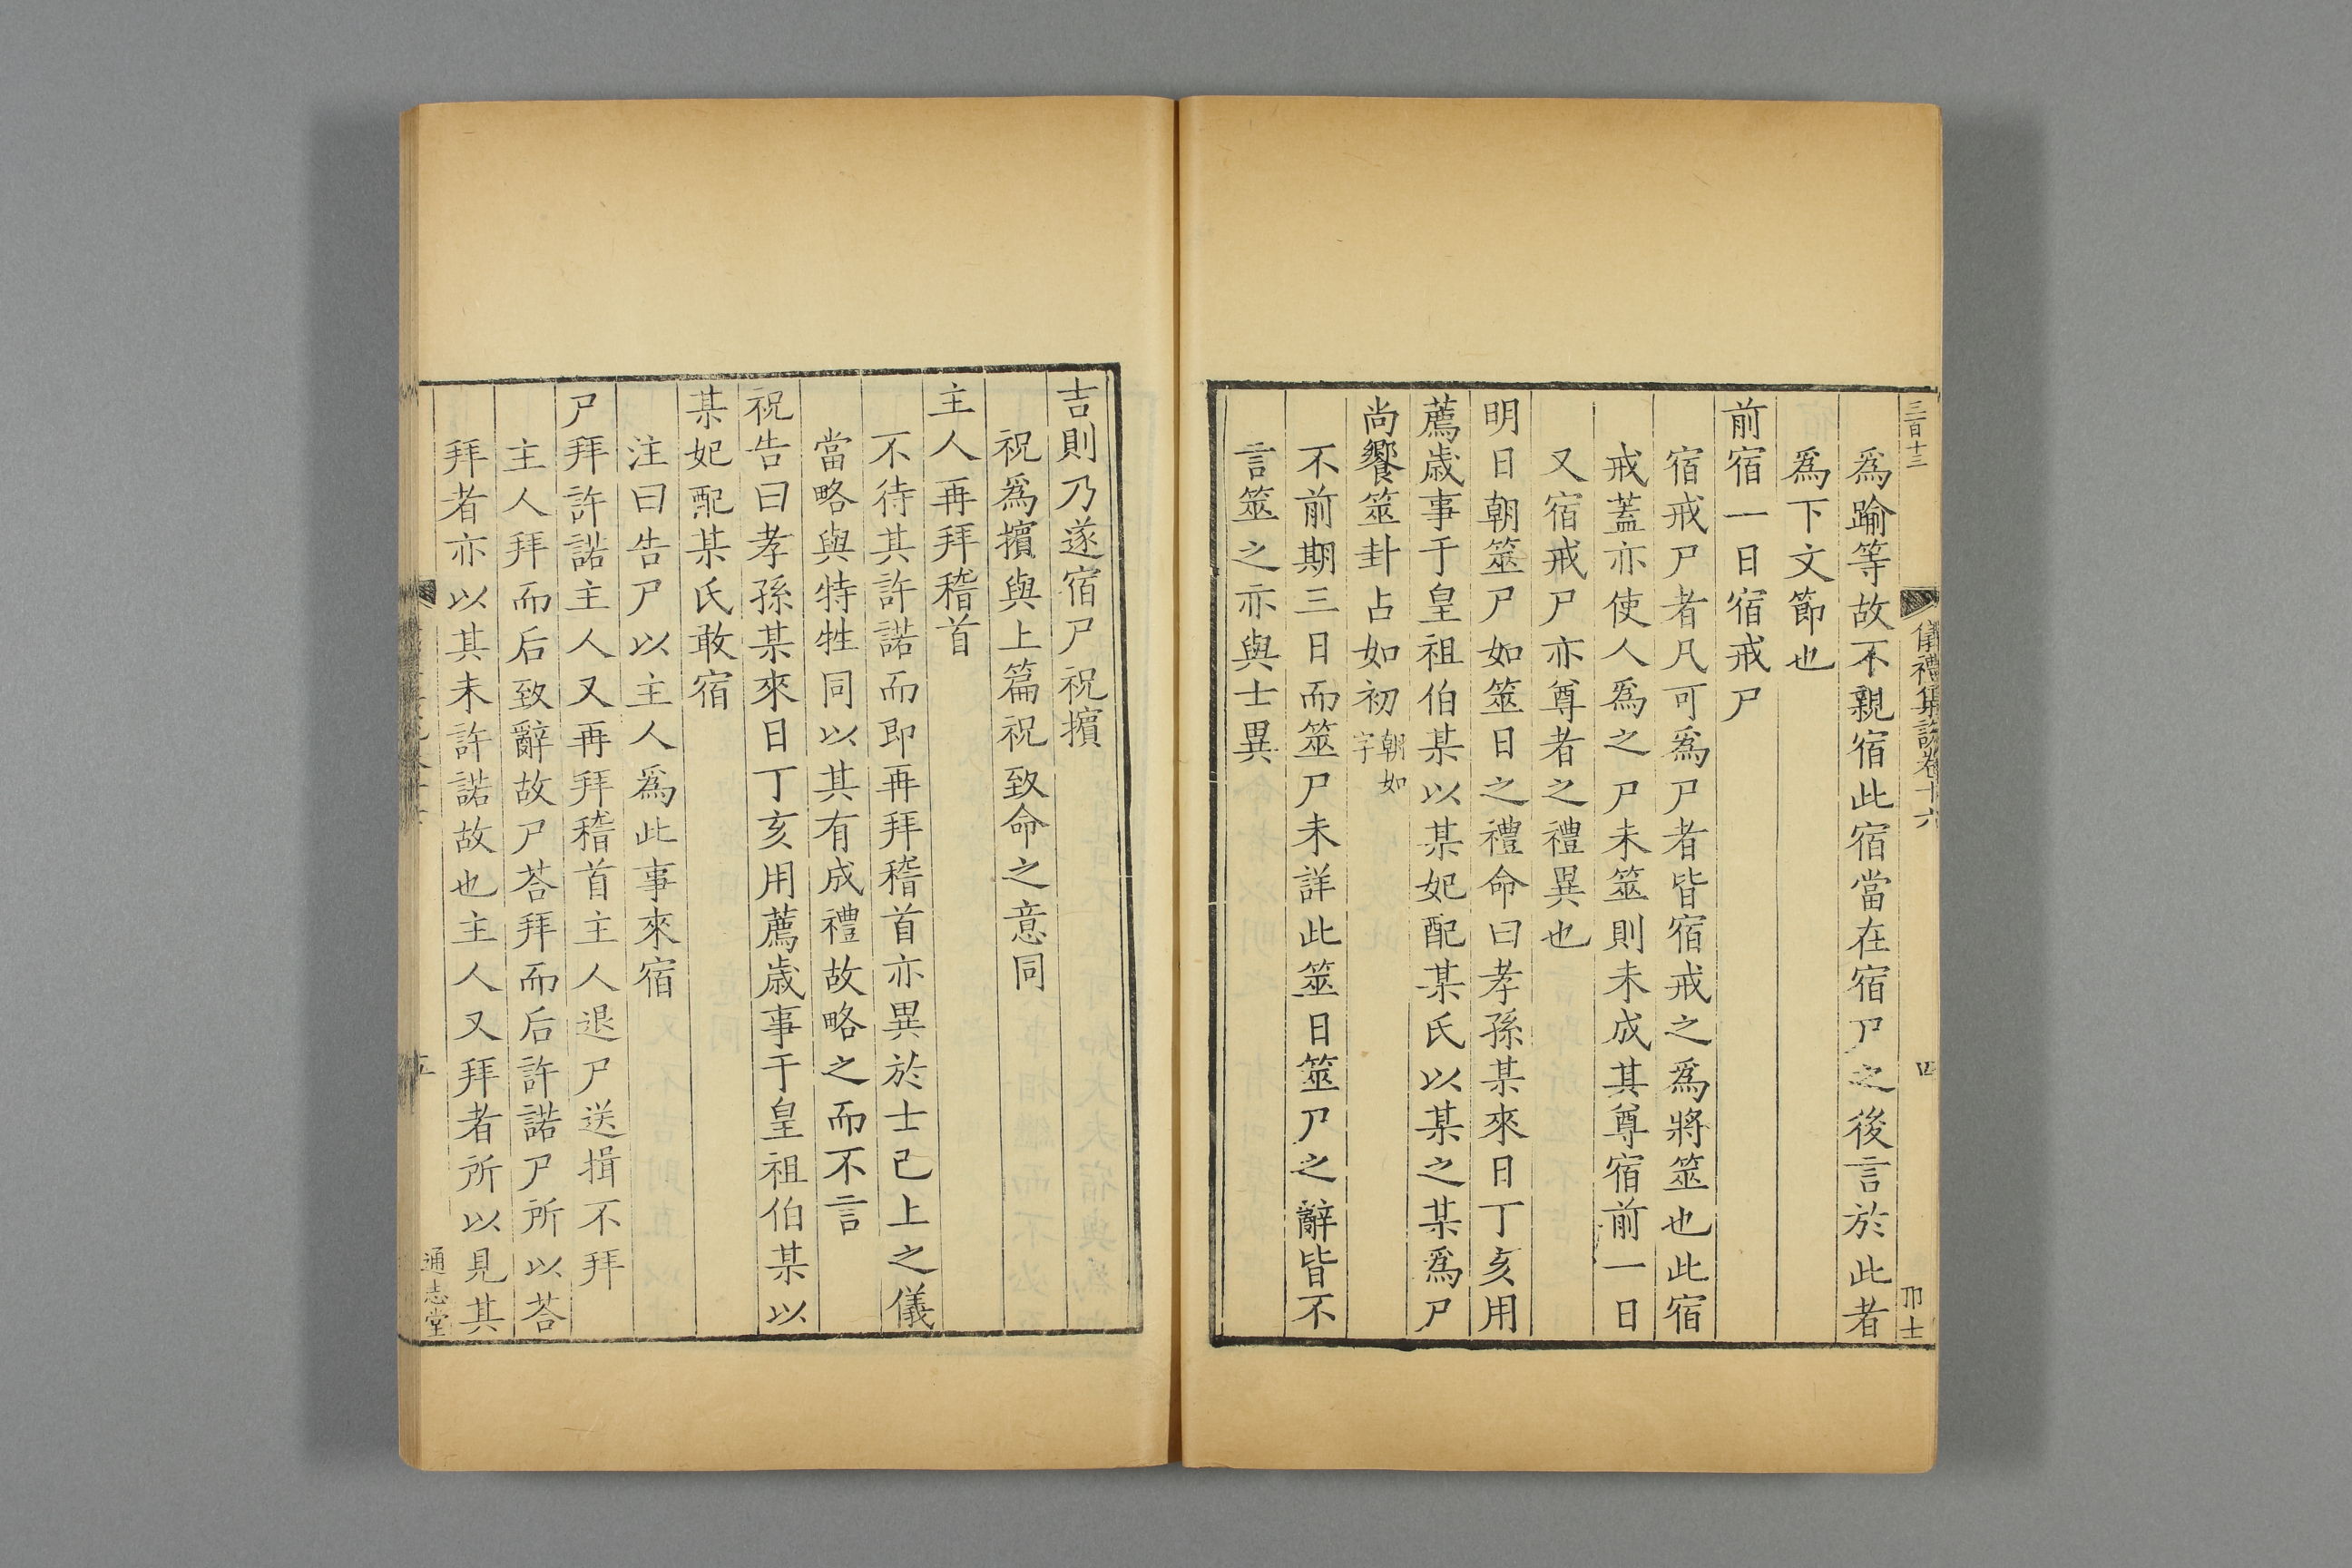 三百十三
儀禮集說卷十六
四
為踰等故不親宿此宿當在宿尸之後言於此者
為下文節也
前宿一日宿戒尸
宿戒尸者凡可為尸者皆宿戒之為將筮也此宿
戒蓋亦使人為之尸未筮則未成其尊宿前一日
又宿戒尸亦尊者之禮異也
明日朝筮尸如筮日之禮命曰孝孫某來日丁亥用
薦歳事于皇祖伯某以某妃配某氏以某之某為尸
尚饗筮卦占如初朝如字
不前期三日而筮尸未詳此筮日筮尸之辭皆不
言筮之亦與士異
吉則乃遂宿尸祝擯
祝為擯與上篇祝致命之意同
主人再拜稽首
不待其許諾而即再拜稽首亦異於士已上之儀
當略與特牲同以其有成禮故略之而不言
祝告曰孝孫某來日丁亥用薦歳事于皇祖伯某以
某妃配某氏敢宿
注曰告尸以主人為此事來宿
尸拜許諾主人又再拜稽首主人退尸送揖不拜
主人拜而后致辭故尸荅拜而后許諾尸所以荅
拜者亦以其未許諾故也主人又拜者所以見其
通志堂